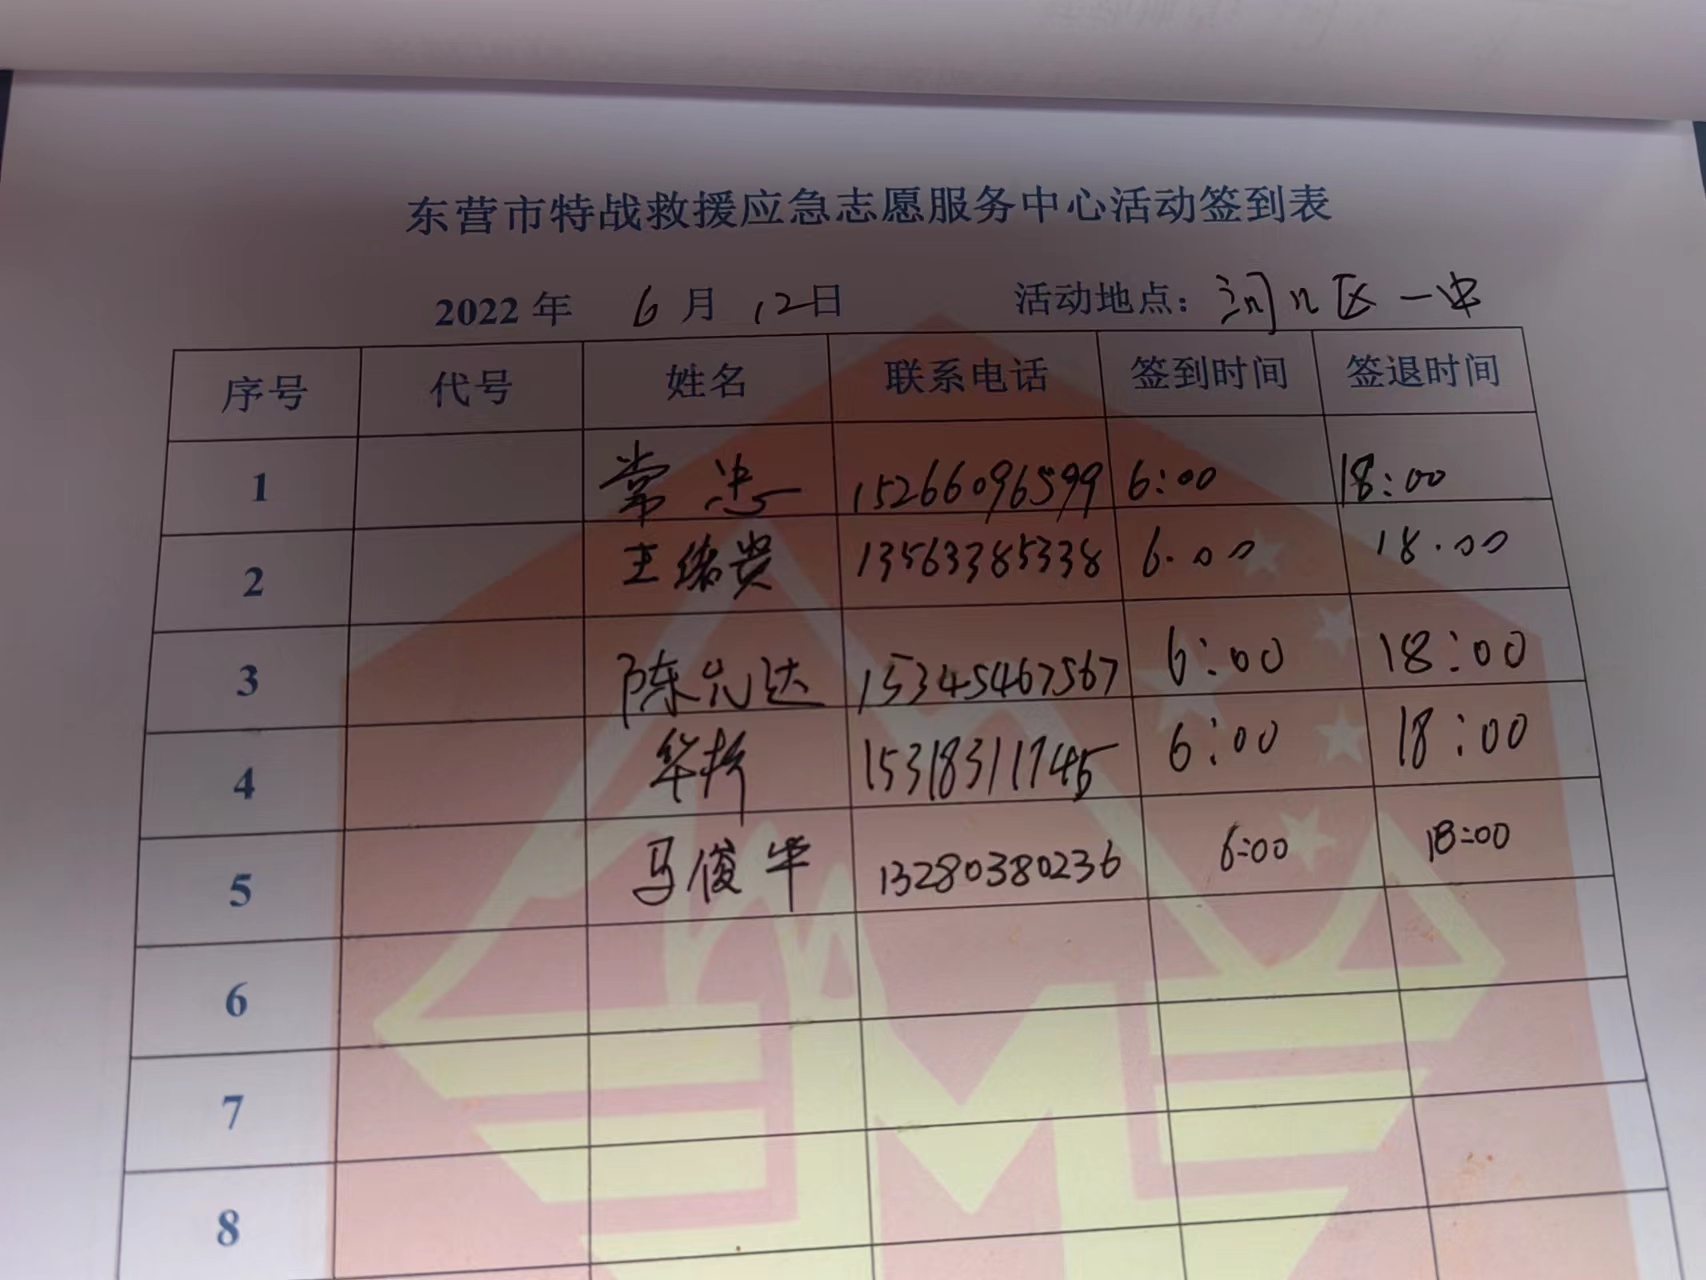 东营市特战救援应急志愿服务中心活动签到表
2022年 6月 12日 活动地点：河口区一中
序号 代号 姓名 联系电话 签到时间 签退时间
1 常忠 15266096599 6:00 18:00
2 王绪贵 13563385338 6.00 18.00
3 陈允达 15345467567 6:00 18:00
4 华彬 15318311745 6:00 18:00
5 马俊华 13280380236 6:00 18:00
6
7
8